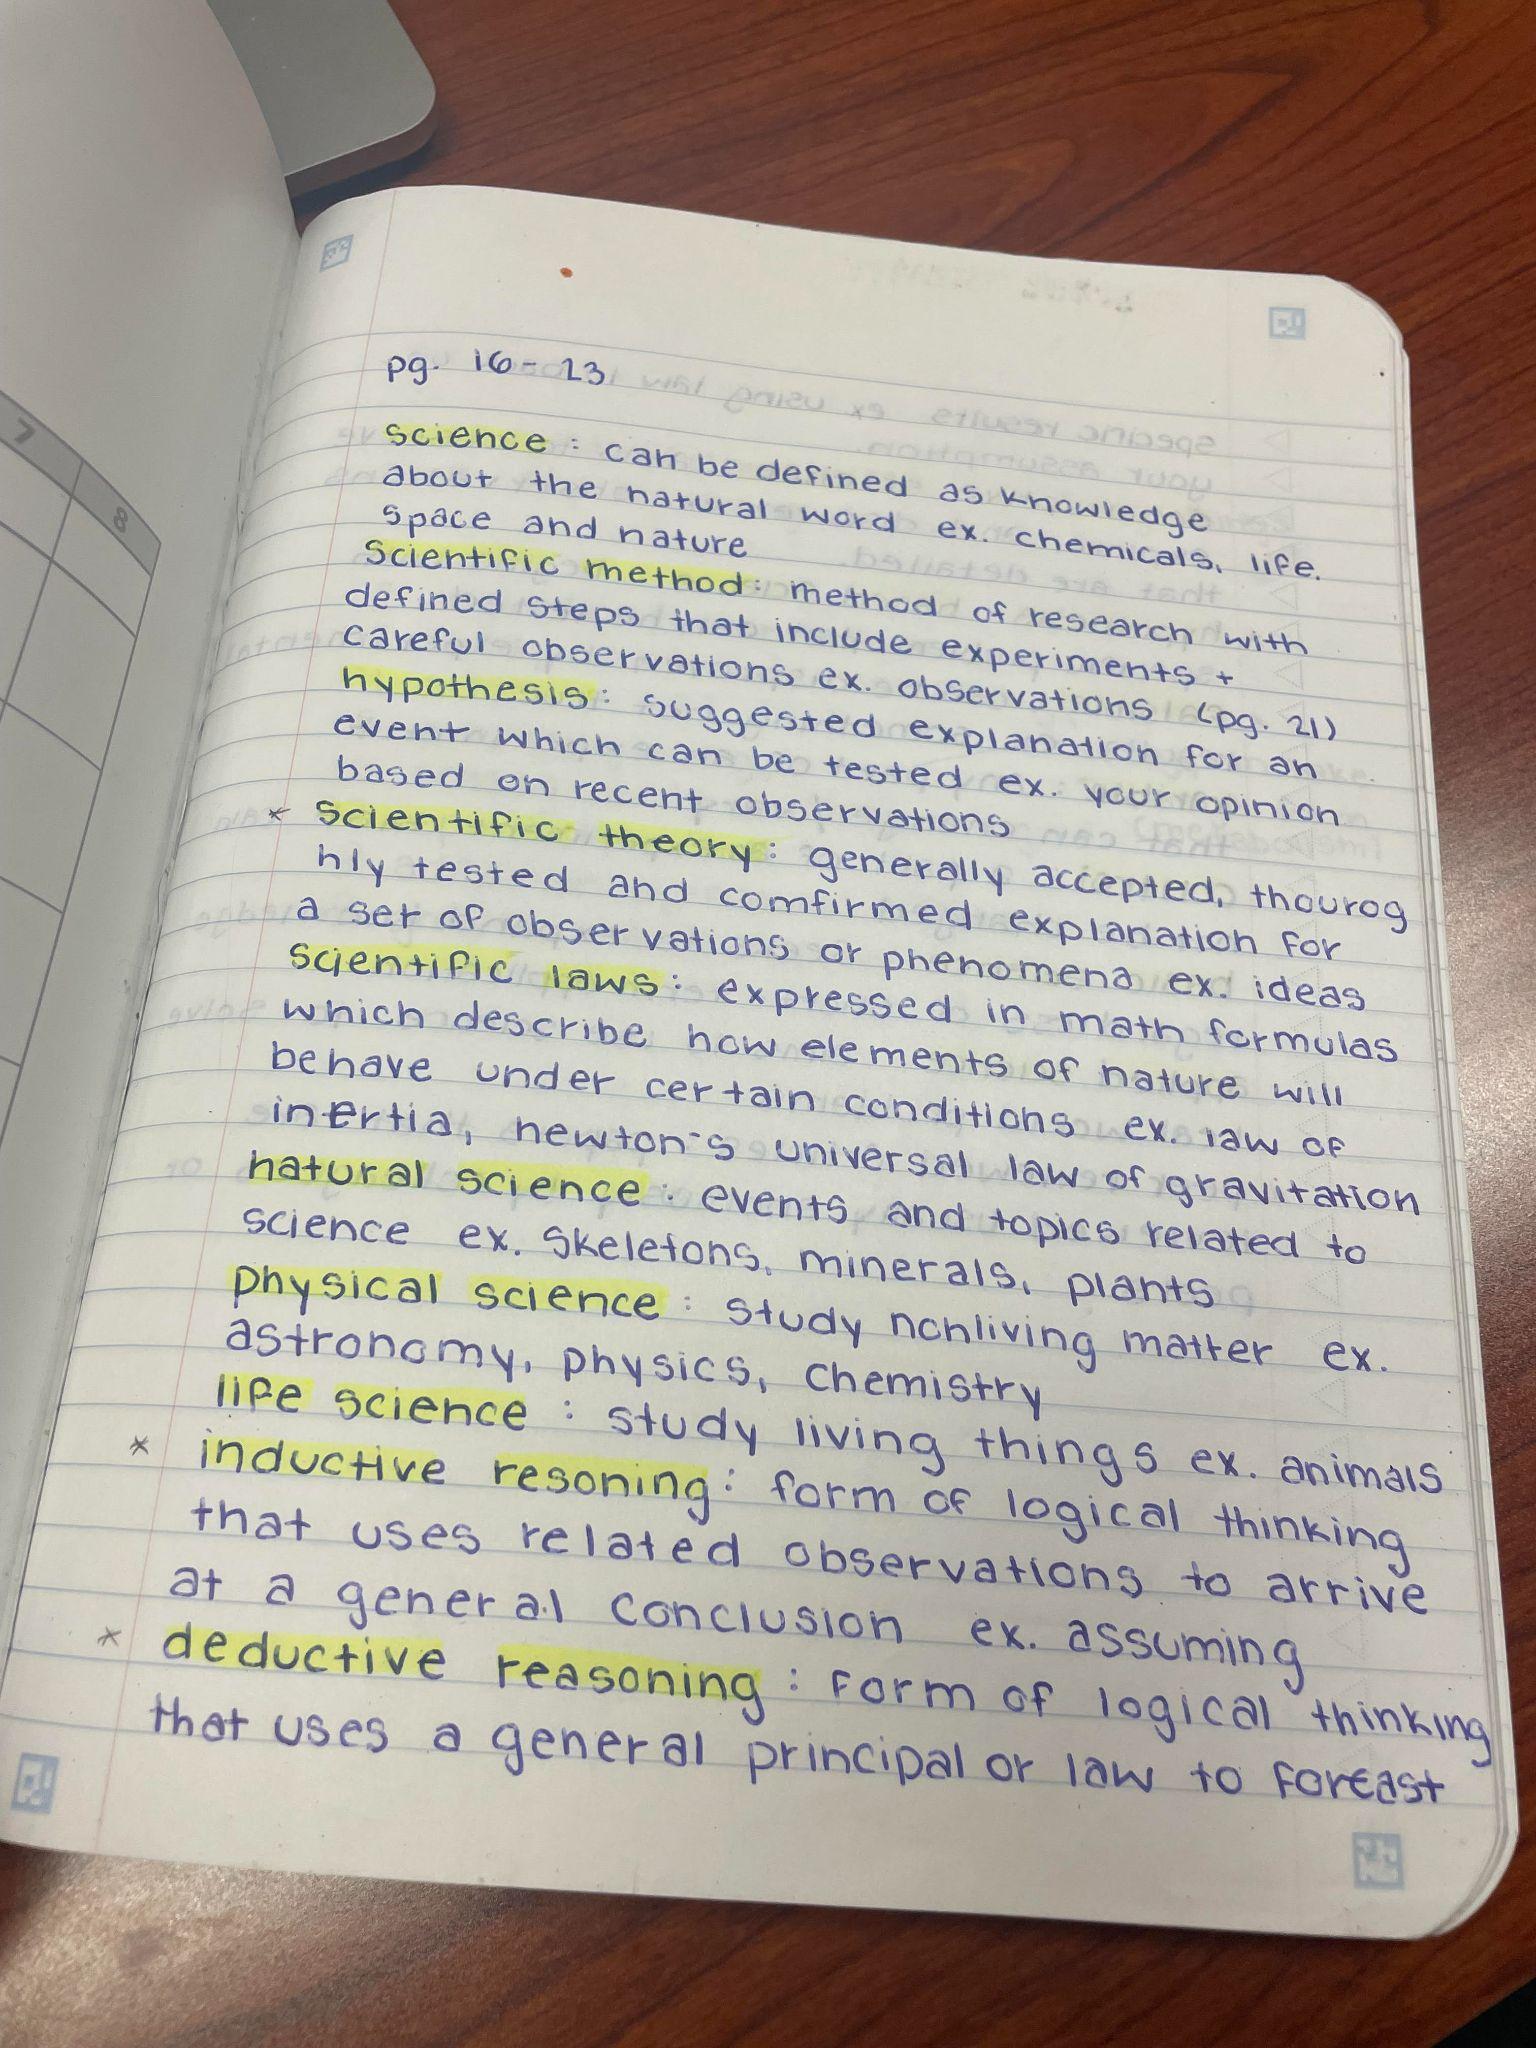 7
8
pg. 16-23
science: can be defined as knowledge
about the natural word ex. chemicals, life.
space and nature
Scientific method: method of research with
defined steps that include experiments +
careful observations ex. observations (pg. 21)
hypothesis: suggested explanation for an
event which can be tested ex. your opinion
based on recent observations
* scientific theory: generally accepted, thourog
hly tested and comfirmed explanation for
a set of observations or phenomena ex. ideas
scientific laws: expressed in math formulas
which describe how elements of nature will
behave under certain conditions ex. law of
inertia, newton's universal law of gravitation
natural science: events and topics related to
science ex. skeletons, minerals, plants
physical science: study nonliving matter ex.
astronomy, physics, chemistry
life science: study living things ex. animals
* inductive resoning: form of logical thinking
that uses related observations to arrive
at a general conclusion ex. assuming
* deductive reasoning: form of logical thinking
that uses a general principal or law to forcast